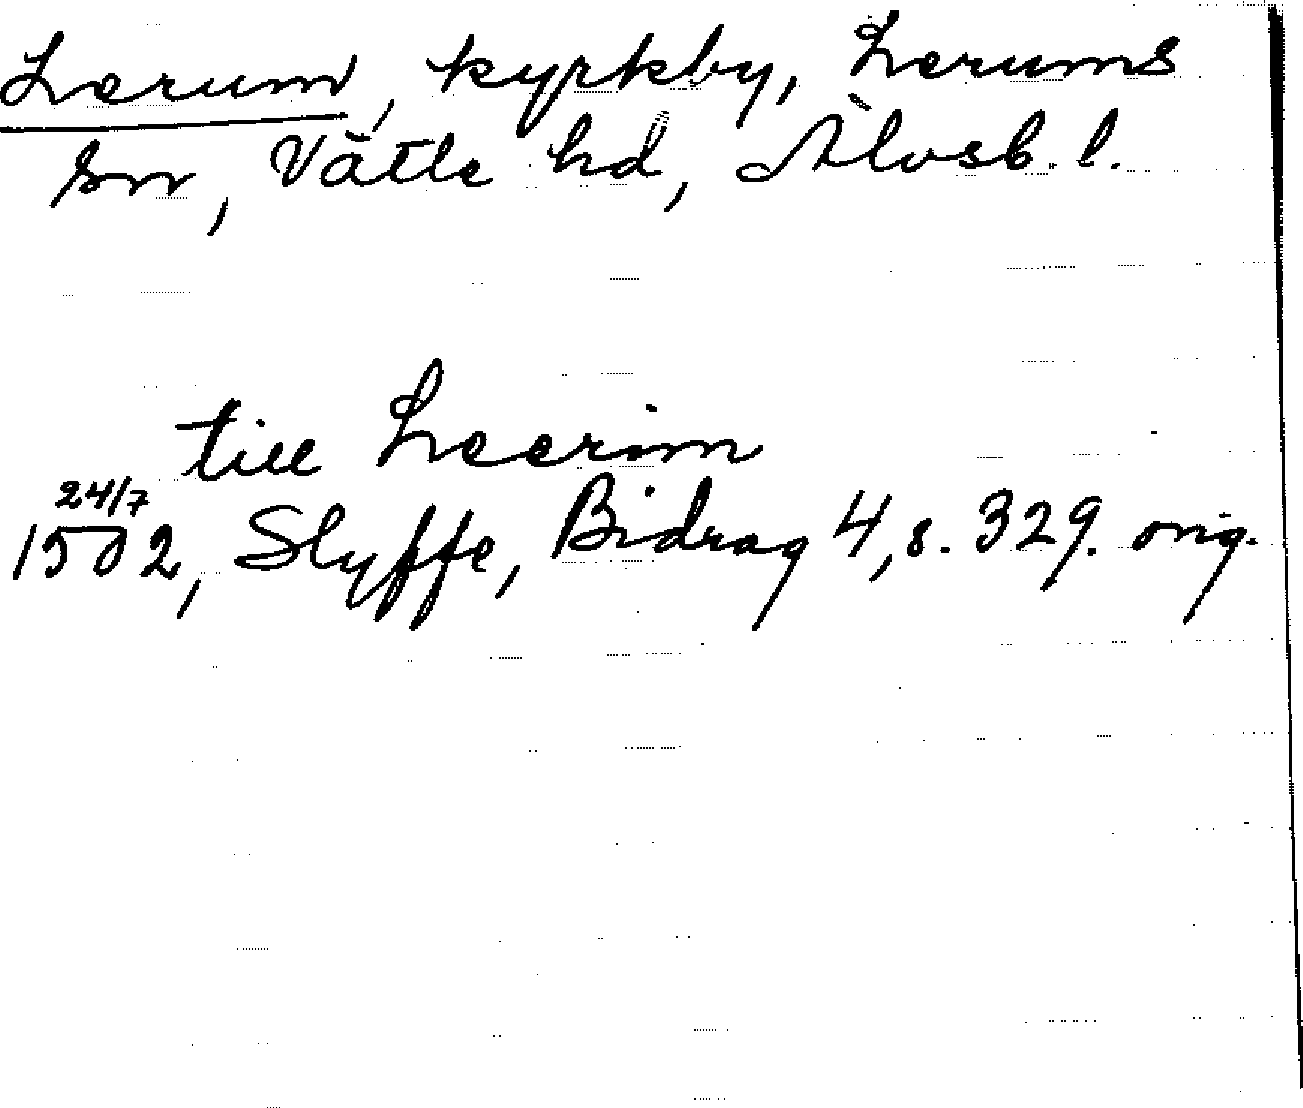 Lerum, kyrkby, Lerums
sn, Vättle hd, Älvsb. l.
till Leerim
24/7
1502, Styffe, Bidrag 4, s. 329. orig.